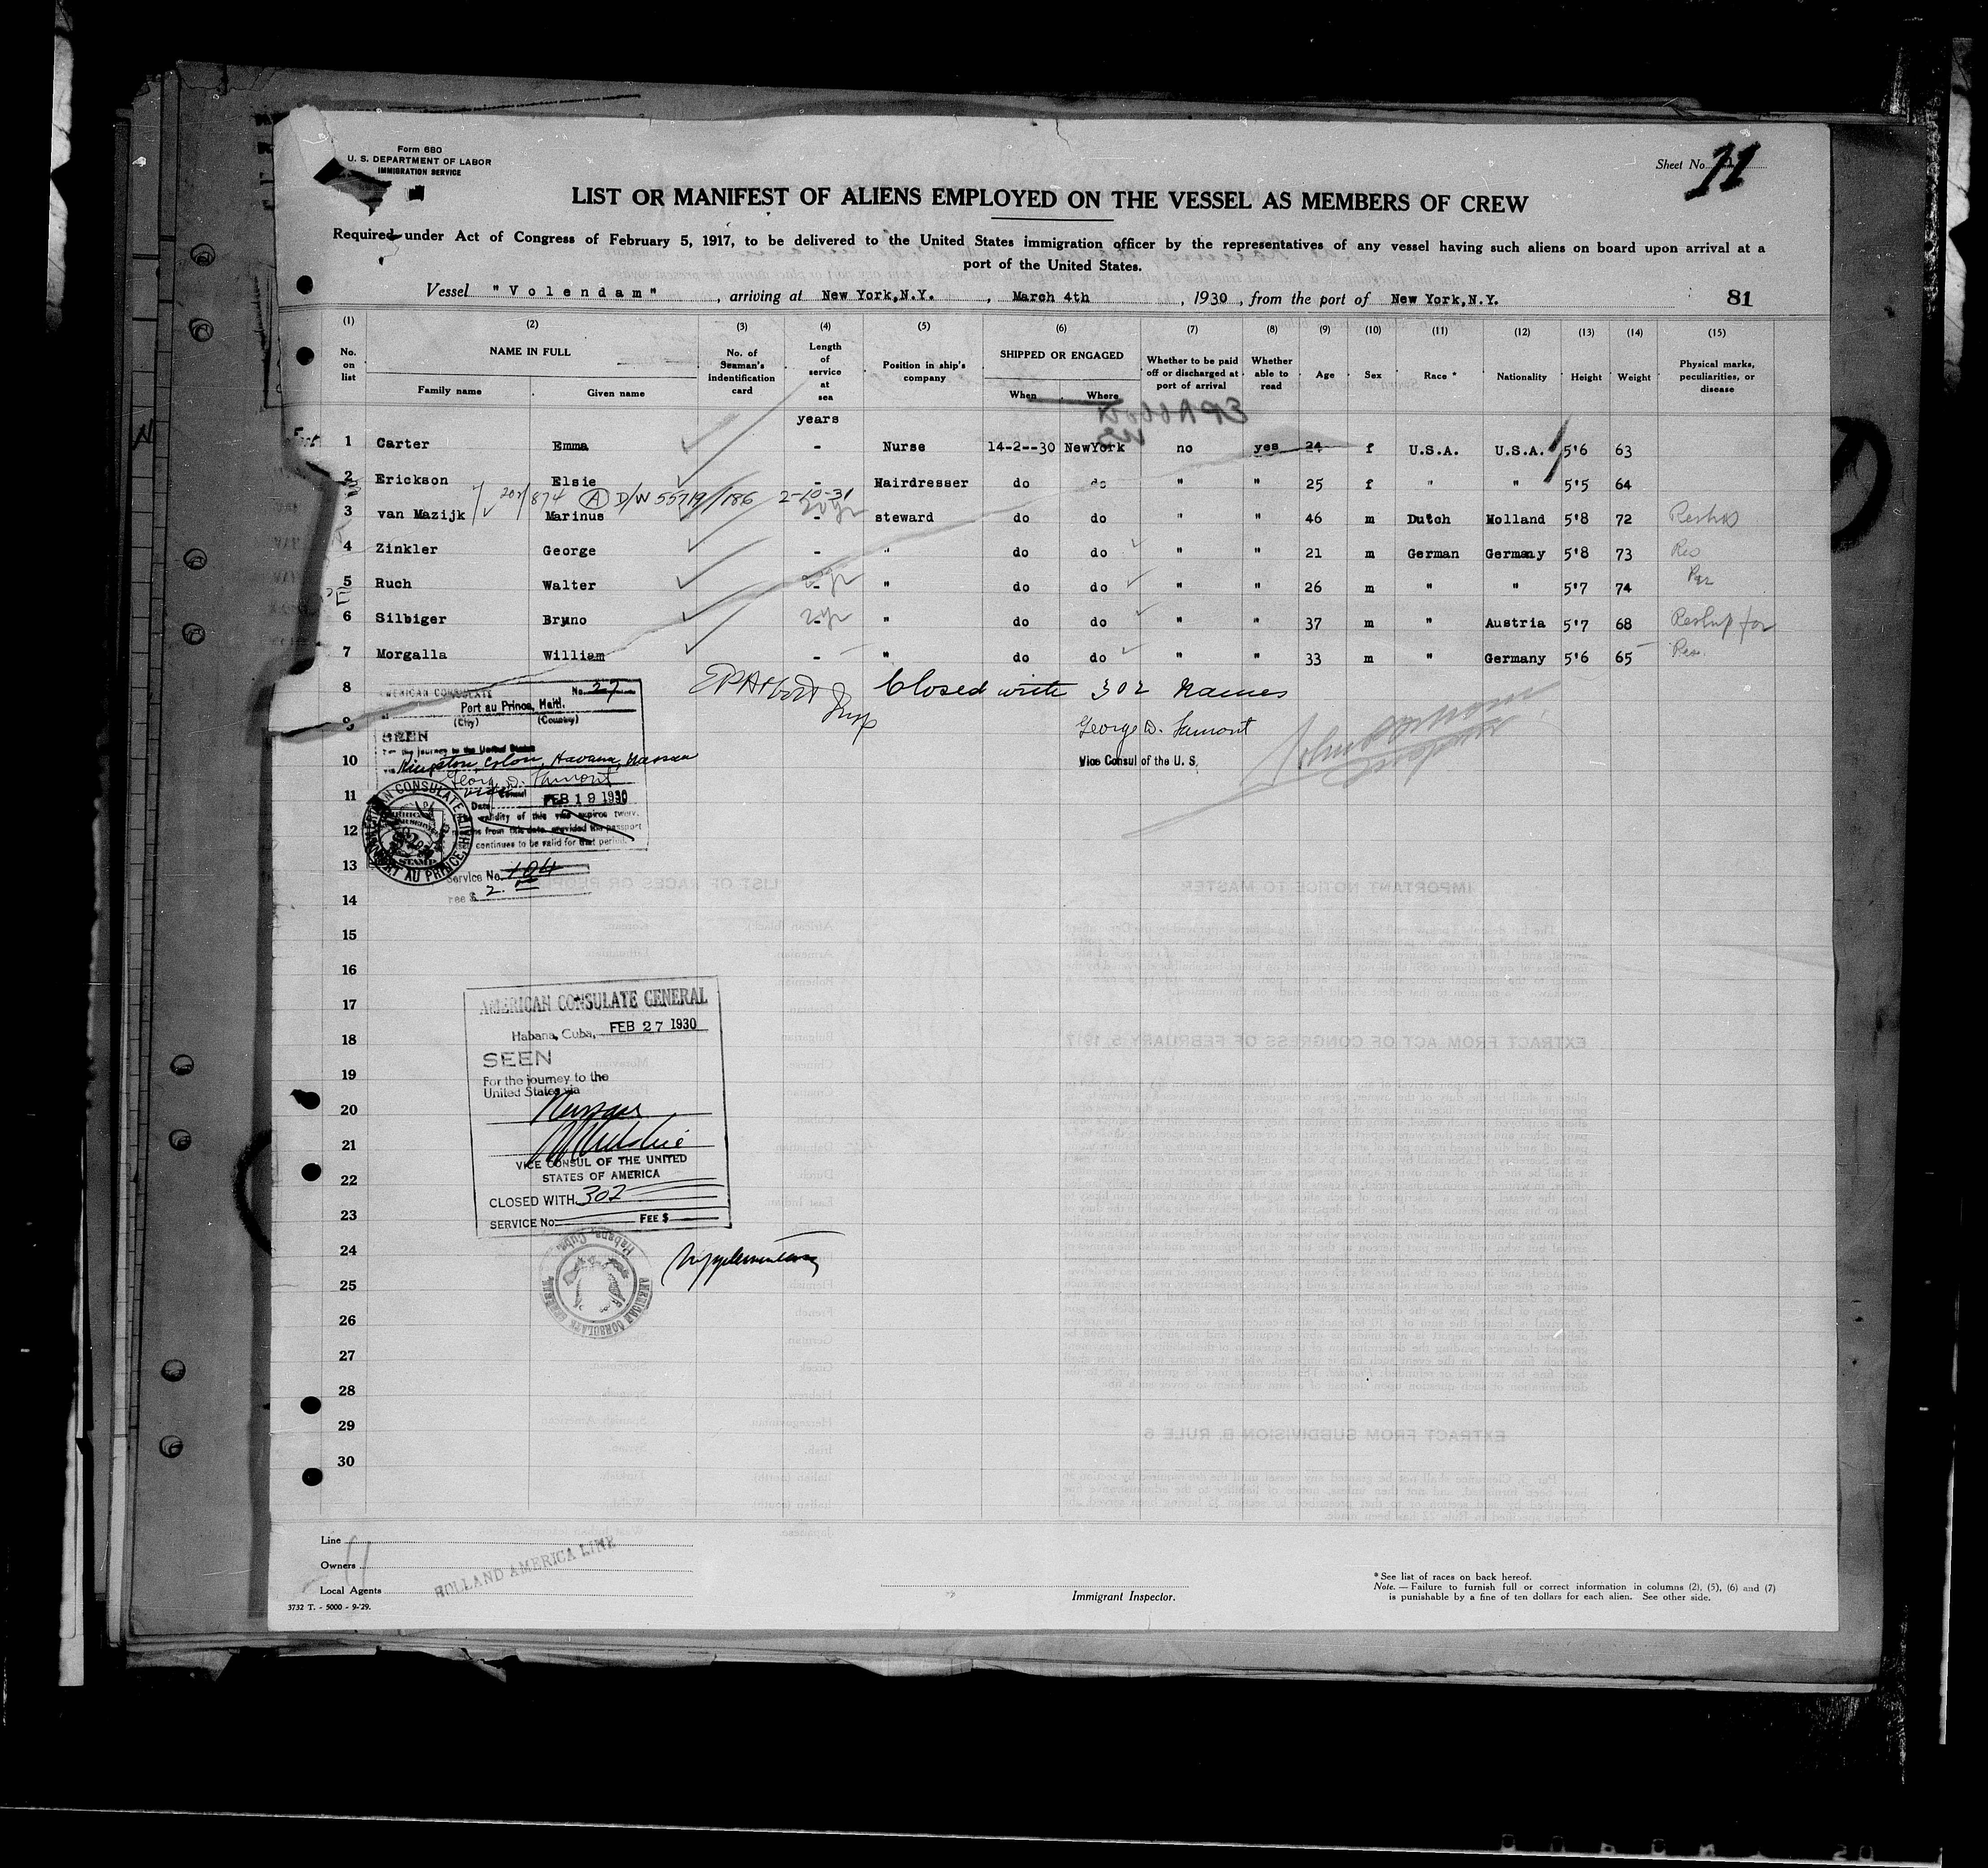 Form 680
U. S. DEPARTMENT OF LABOR
IMMIGRATION SERVICE
Sheet No. 11
LIST OR MANIFEST OF ALIENS EMPLOYED ON THE VESSEL AS MEMBERS OF CREW
Required under Act of Congress of February 5, 1917, to be delivered to the United States immigration officer by the representatives of any vessel having such aliens on board upon arrival at a
port of the United States.
Vessel "Volendam", arriving at New York,N.Y., March 4th, 1930, from the port of New York,N.Y. 81
(1) (2) (3) (4) (5) (6) (7) (8) (9) (10) (11) (12) (13) (14) (15)
No. on list NAME IN FULL Family name Given name No. of Seaman's indentification card Length of service at sea Position in ship's company SHIPPED OR ENGAGED When Where Whether to be paid off or discharged at port of arrival Whether able to read Age Sex Race * Nationality Height Weight Physical marks, peculiarities, or disease
years
1 Carter Emma - Nurse 14-2--30 NewYork no yes 24 f U.S.A. U.S.A. 5'6 63
2 Erickson Elsie - Hairdresser do do " " 25 f " " 5'5 64
874 A D/W 55719/186 2-10-31
3 van Mazijk Marinus - steward do do " " 46 m Dutch Holland 5'8 72
4 Zinkler George - " do do " " 21 m German Germany 5'8 73
5 Ruch Walter " do do " " 26 m " " 5'7 74
6 Silbiger Bruno 2 yr " do do " " 37 m " Austria 5'7 68
7 Morgalla William - " do do " " 33 m " Germany 5'6 65
8
Closed with 302 names
9
George D. Lamont
10
Vice Consul of the U. S.
AMERICAN CONSULATE No. 27
Port au Prince, Haiti.
(City) (Country)
SEEN
For the journey to the United States
via Kingston, Colon, Havana, Nassau
George D. Lamont
Vice Consul
Date FEB 19 1930
validity of this visa expires twelve
months from this date provided the passport
continues to be valid for that period.
Service No. 194
Fee $ 2.
AMERICAN CONSULATE
PORT AU PRINCE, HAITI
11
12
13
14
15
16
17
18
19
20
21
22
23
24
25
26
27
28
29
30
AMERICAN CONSULATE GENERAL
Habana, Cuba, FEB 27 1930
SEEN
For the journey to the
United States via
Nassau
VICE CONSUL OF THE UNITED
STATES OF AMERICA
CLOSED WITH 302
SERVICE No. FEE $
AMERICAN CONSULATE GENERAL
Habana, Cuba.
Supplementary
Line
Owners
HOLLAND AMERICA LINE
Local Agents
3732 T. - 5000 - 9-'29.
Immigrant Inspector.
* See list of races on back hereof.
Note. — Failure to furnish full or correct information in columns (2), (5), (6) and (7)
is punishable by a fine of ten dollars for each alien. See other side.